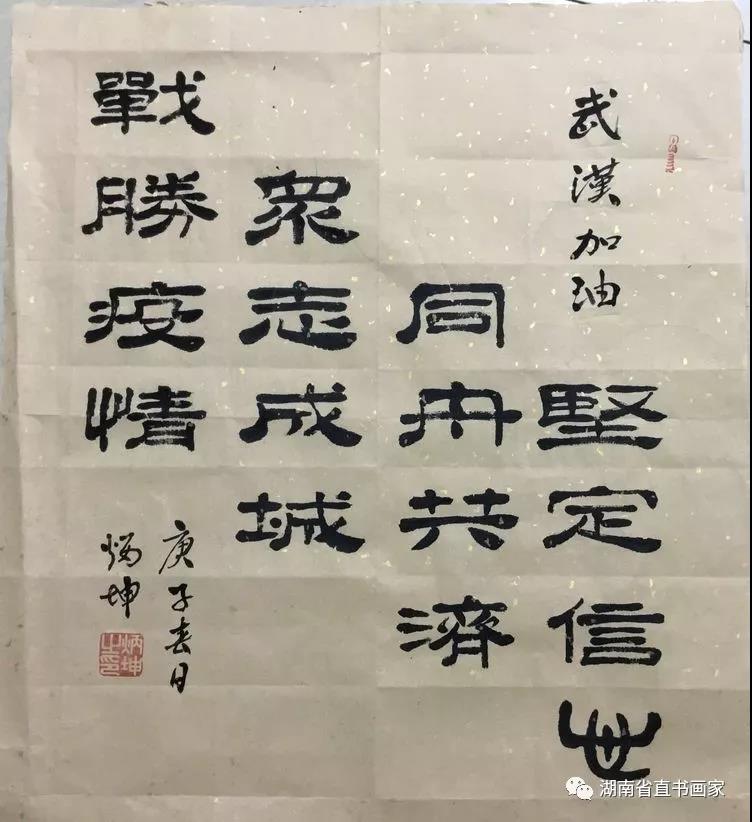 武漢加油
堅定信心
同舟共濟
眾志成城
戰勝疫情
庚子春日
炳坤
炳坤之印
湖南省直书画家